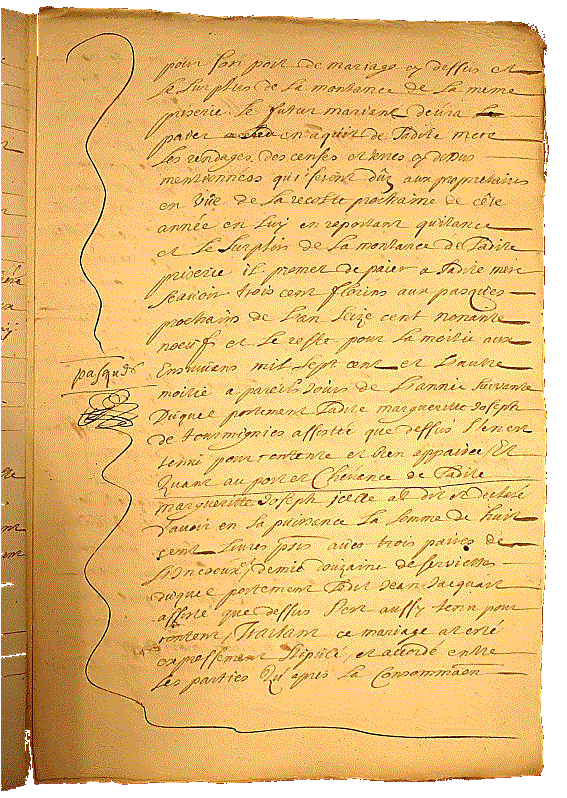 pour son port de mariage cy dessus et
le surplus de la montance de la meme
priserie le futur mariant devra
paier en aquit de ladite mere
les rendages des censes et terres cy dessus
mentionnées qui seront dûz aux proprietaires
en vüe de la recolte prochaine de cête
année en luy en raportant quitance
et le surplus de la montance de ladite
priserie il promet de paier a ladite mere
scavoir trois cent florins aux pasques
prochains de l'an seize cent nonante
noeuf et le reste pour la moitié aux
ensuivans mil sept cent et l'autre
pasques
moitié a pareils Jours de l'année suivante
Duquel portement ladite margueritte Joseph
de tourmignies assistée que dessus s'en est
tenu pour contente et bien appaisée Et
Quant au port et Chevance de ladite
margueritte Joseph icelle at dit et declaré
d'avoir en sa puissance la somme de huit
cent livres avec trois paires de
Lincoeux, demie douzaine de serviettes
duquel portement ledit Jean Jacquart
assisté que dessus s'en est aussy tenu pour
content, Traitant ce mariage at esté
expressement stipulé, et accordé entre
les parties Qu'apres la Consommaon